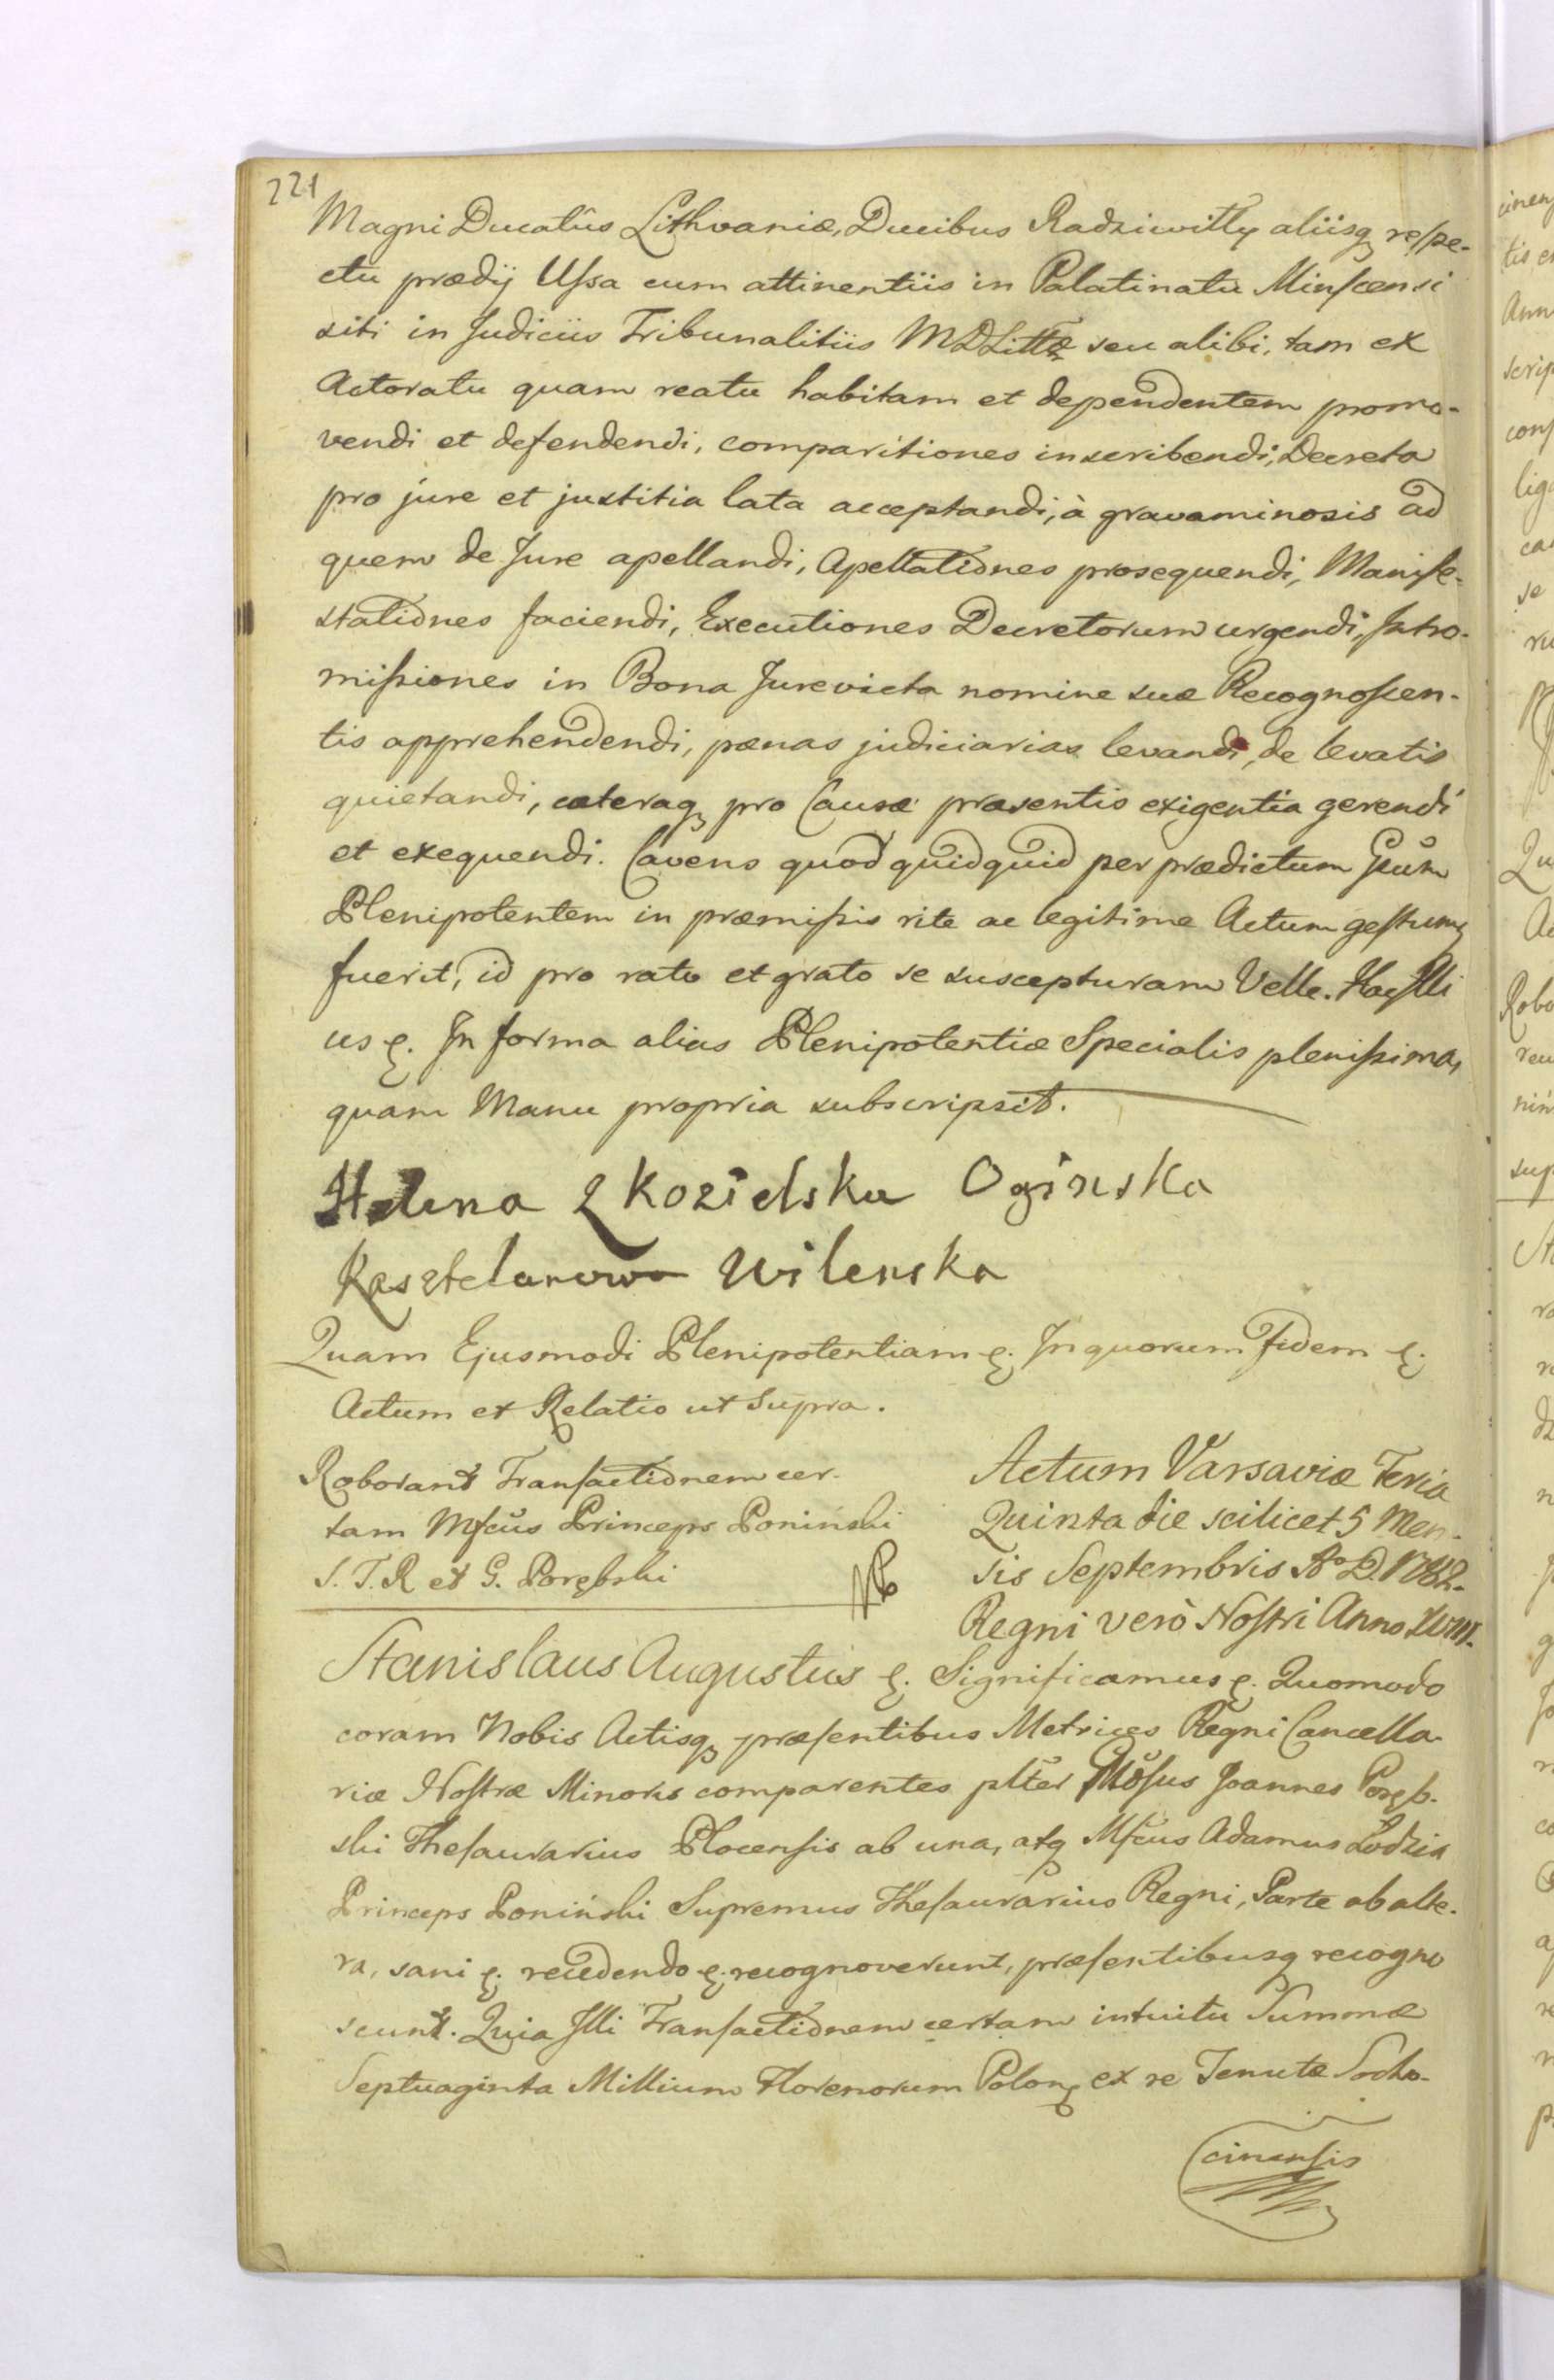 221
Magni Ducatûs Lithvaniæ, Ducibus Radziwiłły aliisq respe-
ctu prædij Ussa cum attinentiis in Palatinatu Minscensi
siti in Judiciis Tribunalitiis MDLittæ seu alibi, tam ex
Actoratu quam reatu habitam et dependentem promo-
vendi et defendendi, comparitiones inscribendi, Decreta
pro jure et justitia lata acceptandi, à gravaminosis ad
quem de Jure apellandi, Apellationes prosequendi, Manife-
stationes faciendi, Executiones Decretorum urgendi, Intro-
missiones in Bona Jurevicta nomine suæ Recognoscen-
tis apprehendendi, pœnas judiciarias levandi, de levatis
quietandi, cæteraq pro Causæ præsentis exigentia gerendi
et exequendi. Cavens quod quidquid per prædictum Gsum
Plenipotentem in præmissis rite ac legitime Actum gestumq
fuerit, id pro rato et grato se suscepturam Velle. Hac Illi
us ę. In forma alias Plenipotentiæ Specialis plenissima,
quam Manu propria subscripsit.
Helena z Kozielska Oginska
Kasztelanowa Wilenska
Quam Ejusmodi Plenipotentiam ę. In quorum Fidem ę.
Actum et Relatio ut Supra.
Roborant Transactionem cer-
tam Mfcus Princeps Poniński
S. T. R et G. Porębski
Actum Varsaviæ Feria
Quinta die scilicet 5 Men-
sis Septembris Ao D. 1782.
Regni verò Nostri Anno XVIII.
Stanislaus Augustus ę. Significamus ę. Quomodo
coram Nobis Actisq præsentibus Metrices Regni Cancella-
riæ Nostræ Minoris comparentes plter Gnosus Joannes Poręb-
ski Thesaurarius Plocensis ab una, atq Mfcus Adamus Łodzia
Princeps Poniński Supremus Thesaurarius Regni, Parte ab alte-
ra, sani ę. recedendo ę. recognoverunt, præsentibusq recogno
scunt. Quia Illi Transactionem certam intuitu Summæ
Septuaginta Millium Florenorum Polon ex re Tenutæ Socho-
cinensis